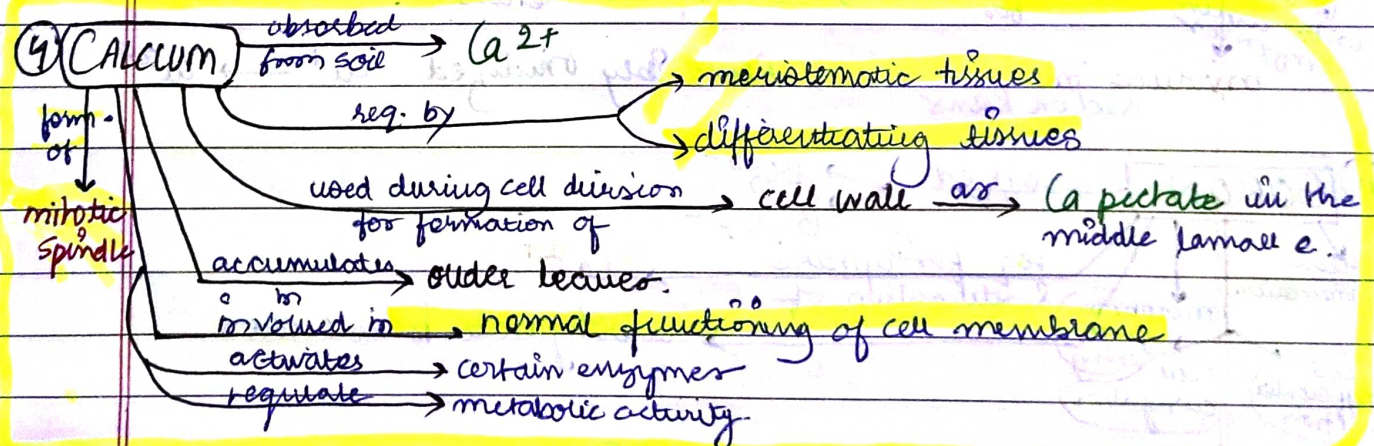 ④ CALCIUM absorbed from soil → Ca2+
req. by → meristematic tissues
→ differentiating tissues
form. of → mitotic spindle
used during cell division for formation of → cell wall as → Ca pectate in the
middle lamallae.
accumulates in → older leaves.
involved in → normal functioning of cell membrane
activates → certain enzymes
regulate → metabolic activity.